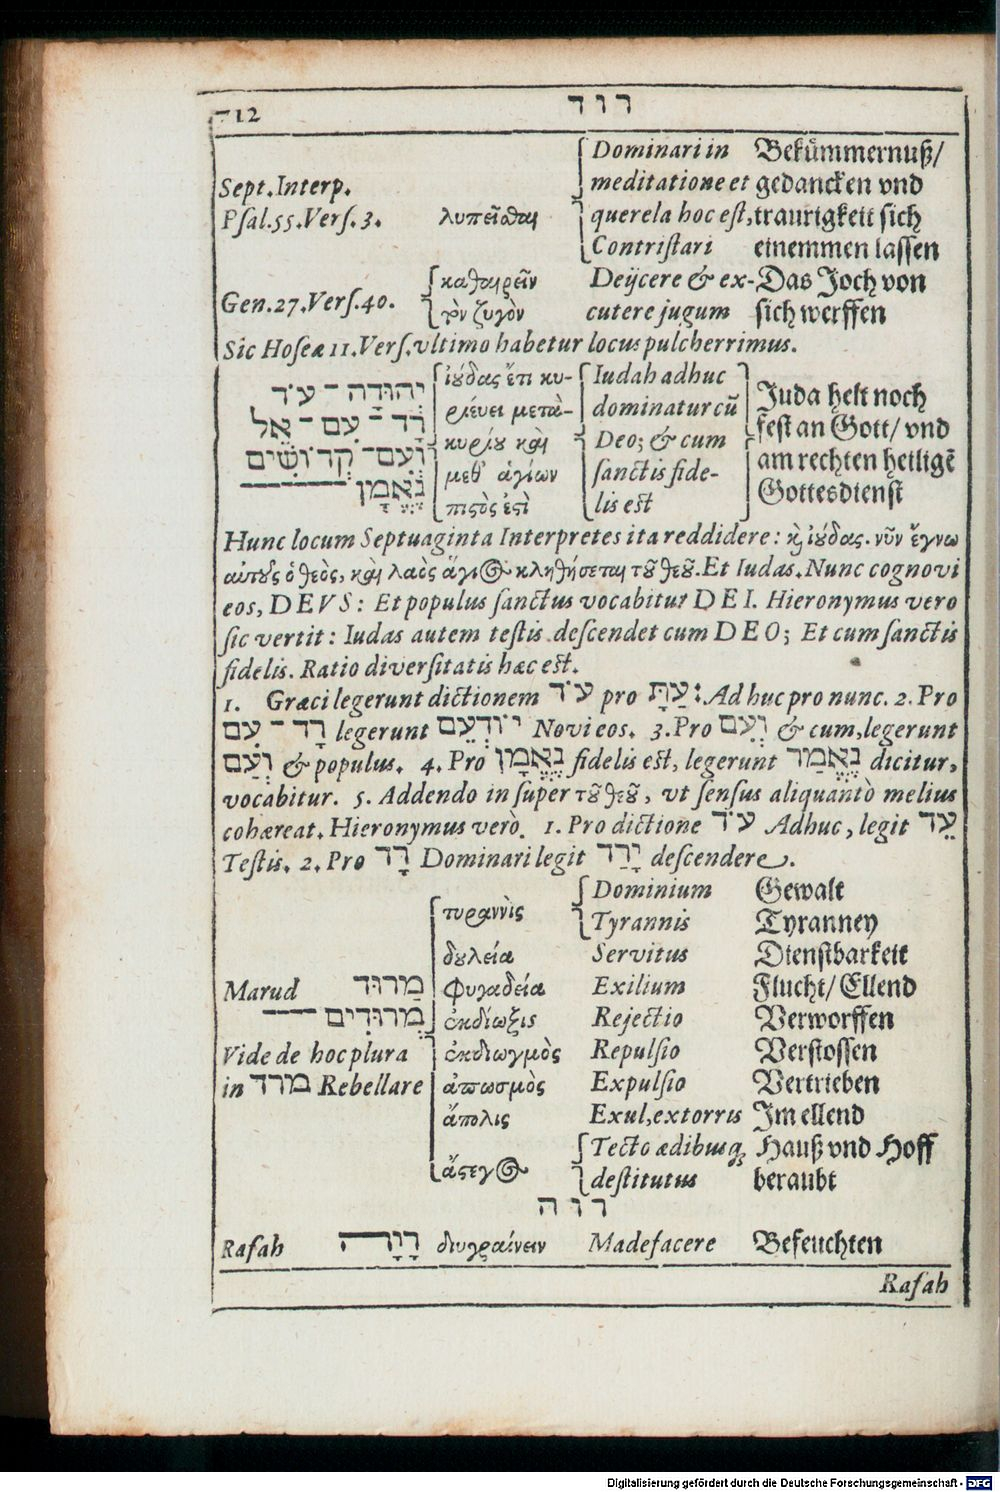 712 רוד
Dominari in Bekümmernuß/
Sept. Interp. meditatione et gedancken vnd
Psal. 55. Vers. 3. λυπεῖσθαι querela hoc est, traurigkeit sich
Contristari einemmen lassen
καθαιρεῖν Deijcere & ex- Das Joch von
Gen. 27. Vers. 40. τὸν ζυγὸν cutere jugum sich werffen
Sic Hoseæ 11. Vers. ultimo habetur locus pulcherrimus.
יְהוּדָה־עֹד ἰούδας ἔτι κυ- Iudah adhuc Juda helt noch
רָד־עִם־אֵל ριεύει μετὰ- dominatur cũ fest an Gott/ vnd
וְעִם־קְדוֹשִׁים κυρίου καὶ Deo; & cum am rechten heiligẽ
μεθ' ἁγίων sanctis fide- Gottesdienst
נֶאֱמָן πιστὸς ἐστὶ lis est
Hunc locum Septuaginta Interpretes ita reddidere: καὶ ἰούδας. νῦν ἔγνω
αὐτοὺς ὁ θεὸς, καὶ λαὸς ἅγιος κληθήσεται τοῦ θεοῦ. Et Iudas. Nunc cognovi
eos, DEVS: Et populus sanctus vocabitur DEI. Hieronymus vero
sic vertit: Iudas autem testis descendet cum DEO; Et cum sanctis
fidelis. Ratio diversitatis hæc est.
1. Græci legerunt dictionem עֹד pro עַתָּ: Ad huc pro nunc. 2. Pro
רָד־עִם legerunt יוֹדְעֵם Novi eos. 3. Pro וְעִם & cum, legerunt
וְעַם & populus. 4. Pro נֶאֱמָן fidelis est, legerunt נֶאֱמַר dicitur,
vocabitur. 5. Addendo insuper τοῦ θεοῦ, ut sensus aliquantò melius
cohæreat. Hieronymus verò. 1. Pro dictione עֹד Adhuc, legit עֵד
Testis. 2. Pro רָד Dominari legit יָרַד descendere.
Dominium Gewalt
τυραννὶς Tyrannis Tyranney
δουλεία Servitus Dienstbarkeit
Marud מַרוּד φυγαδεία Exilium Flucht/ Ellend
מְרוּדִים ἐκδίωξις Rejectio Verworffen
Vide de hoc plura ἐκδιωγμὸς Repulsio Verstossen
in מרד Rebellare ἀπωσμὸς Expulsio Vertrieben
ἄπολις Exul, extorris Im ellend
Tecto ædibusq; Hauß vnd Hoff
ἄστεγος destitutus beraubt
רוה
Rafah רָוָה διυγραίνειν Madefacere Befeuchten
Rafah
Digitalisierung gefördert durch die Deutsche Forschungsgemeinschaft - DFG